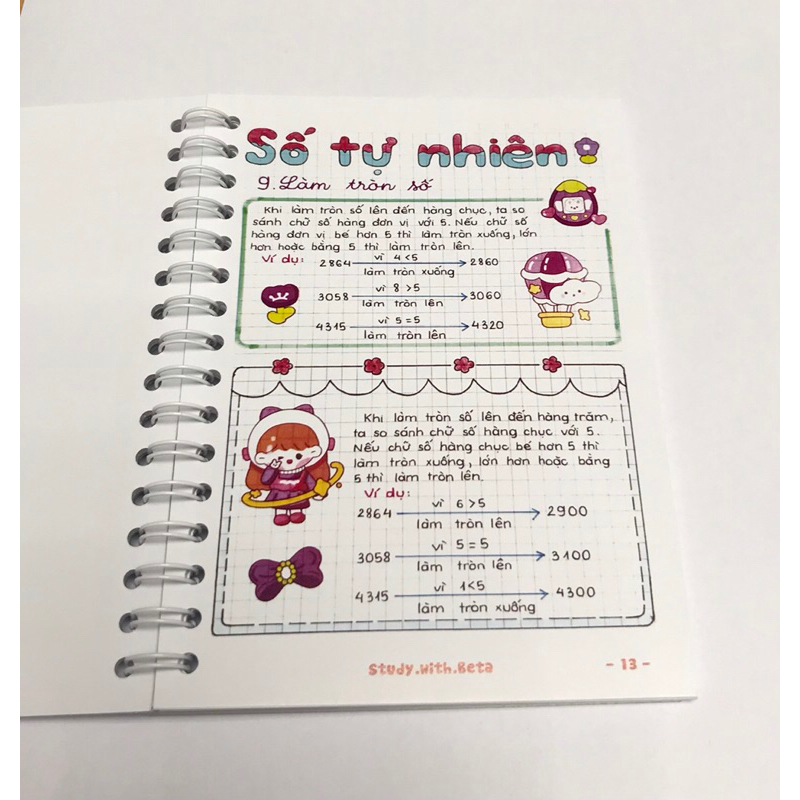 Số tự nhiên
9. Làm tròn số
Khi làm tròn số lên đến hàng chục, ta so
sánh chữ số hàng đơn vị với 5. Nếu chữ số
hàng đơn vị bé hơn 5 thì làm tròn xuống, lớn
hơn hoặc bằng 5 thì làm tròn lên.
Ví dụ:
vì 4 < 5
2864 → 2860
làm tròn xuống
vì 8 > 5
3058 → 3060
làm tròn lên
vì 5 = 5
4315 → 4320
làm tròn lên
Khi làm tròn số lên đến hàng trăm,
ta so sánh chữ số hàng chục với 5.
Nếu chữ số hàng chục bé hơn 5 thì
làm tròn xuống, lớn hơn hoặc bằng
5 thì làm tròn lên.
Ví dụ:
vì 6 > 5
2864 → 2900
làm tròn lên
vì 5 = 5
3058 → 3100
làm tròn lên
vì 1 < 5
4315 → 4300
làm tròn xuống
Study.With.Beta
- 13 -